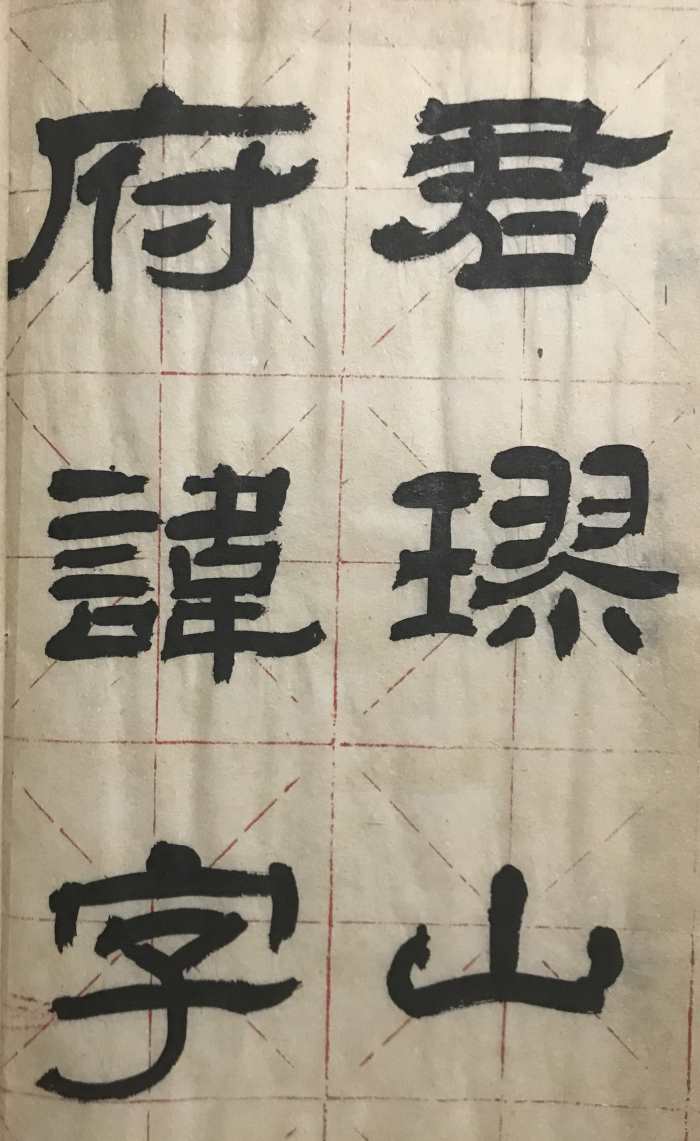 君璆山
府諱字